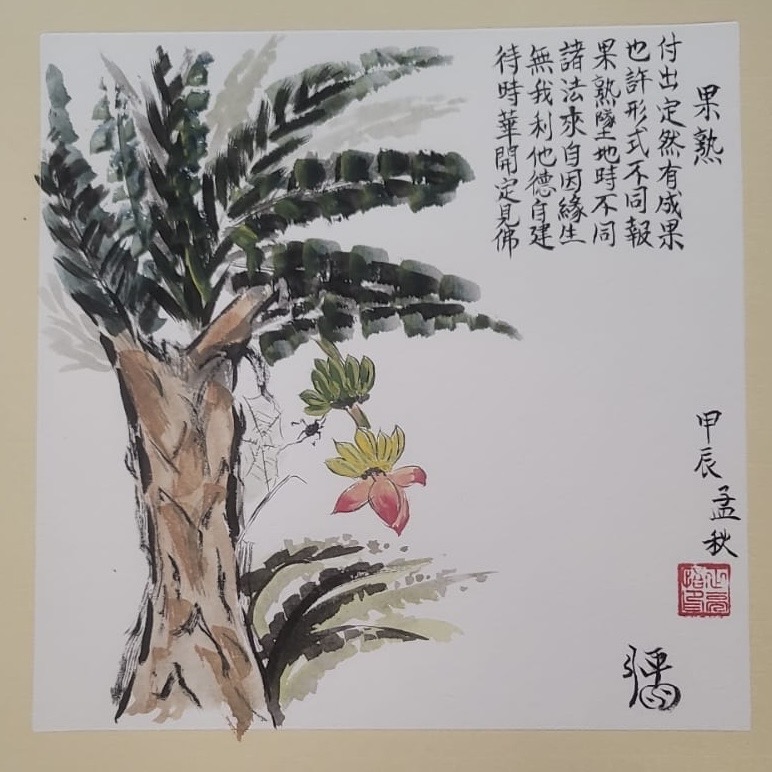 果熟
付出定然有成果
也許形式不同報
果熟墜地時不同
諸法來自因緣生
無我利他德自建
待時華開定見佛
甲辰孟秋